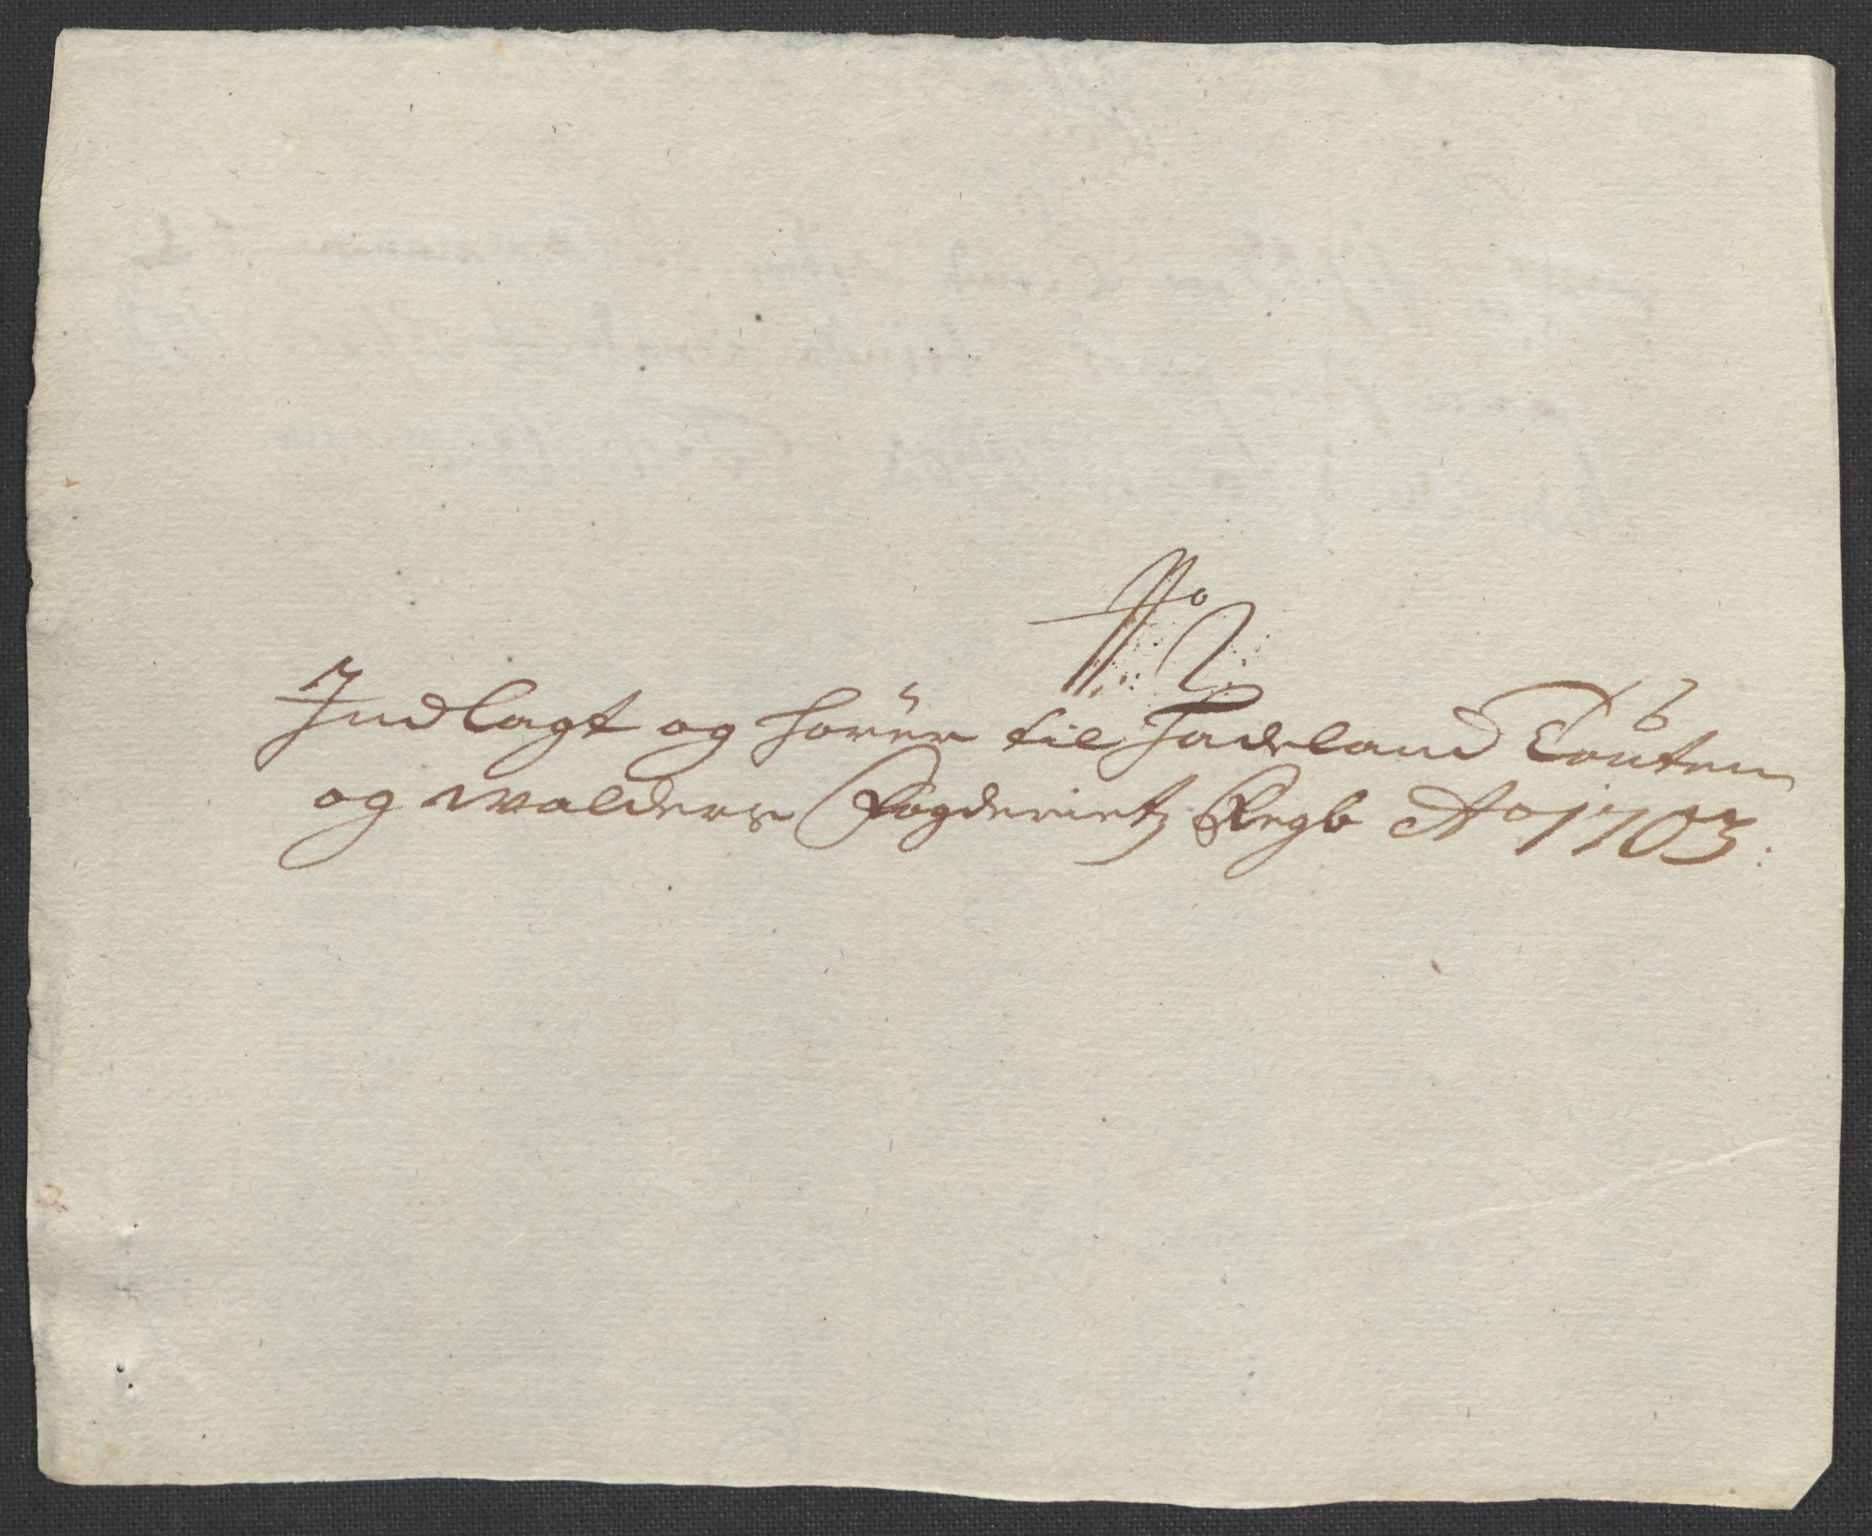 No 2
Indlagt og hører til Hadeland Touten
og walders Fogderietz Regb Ao 1703: